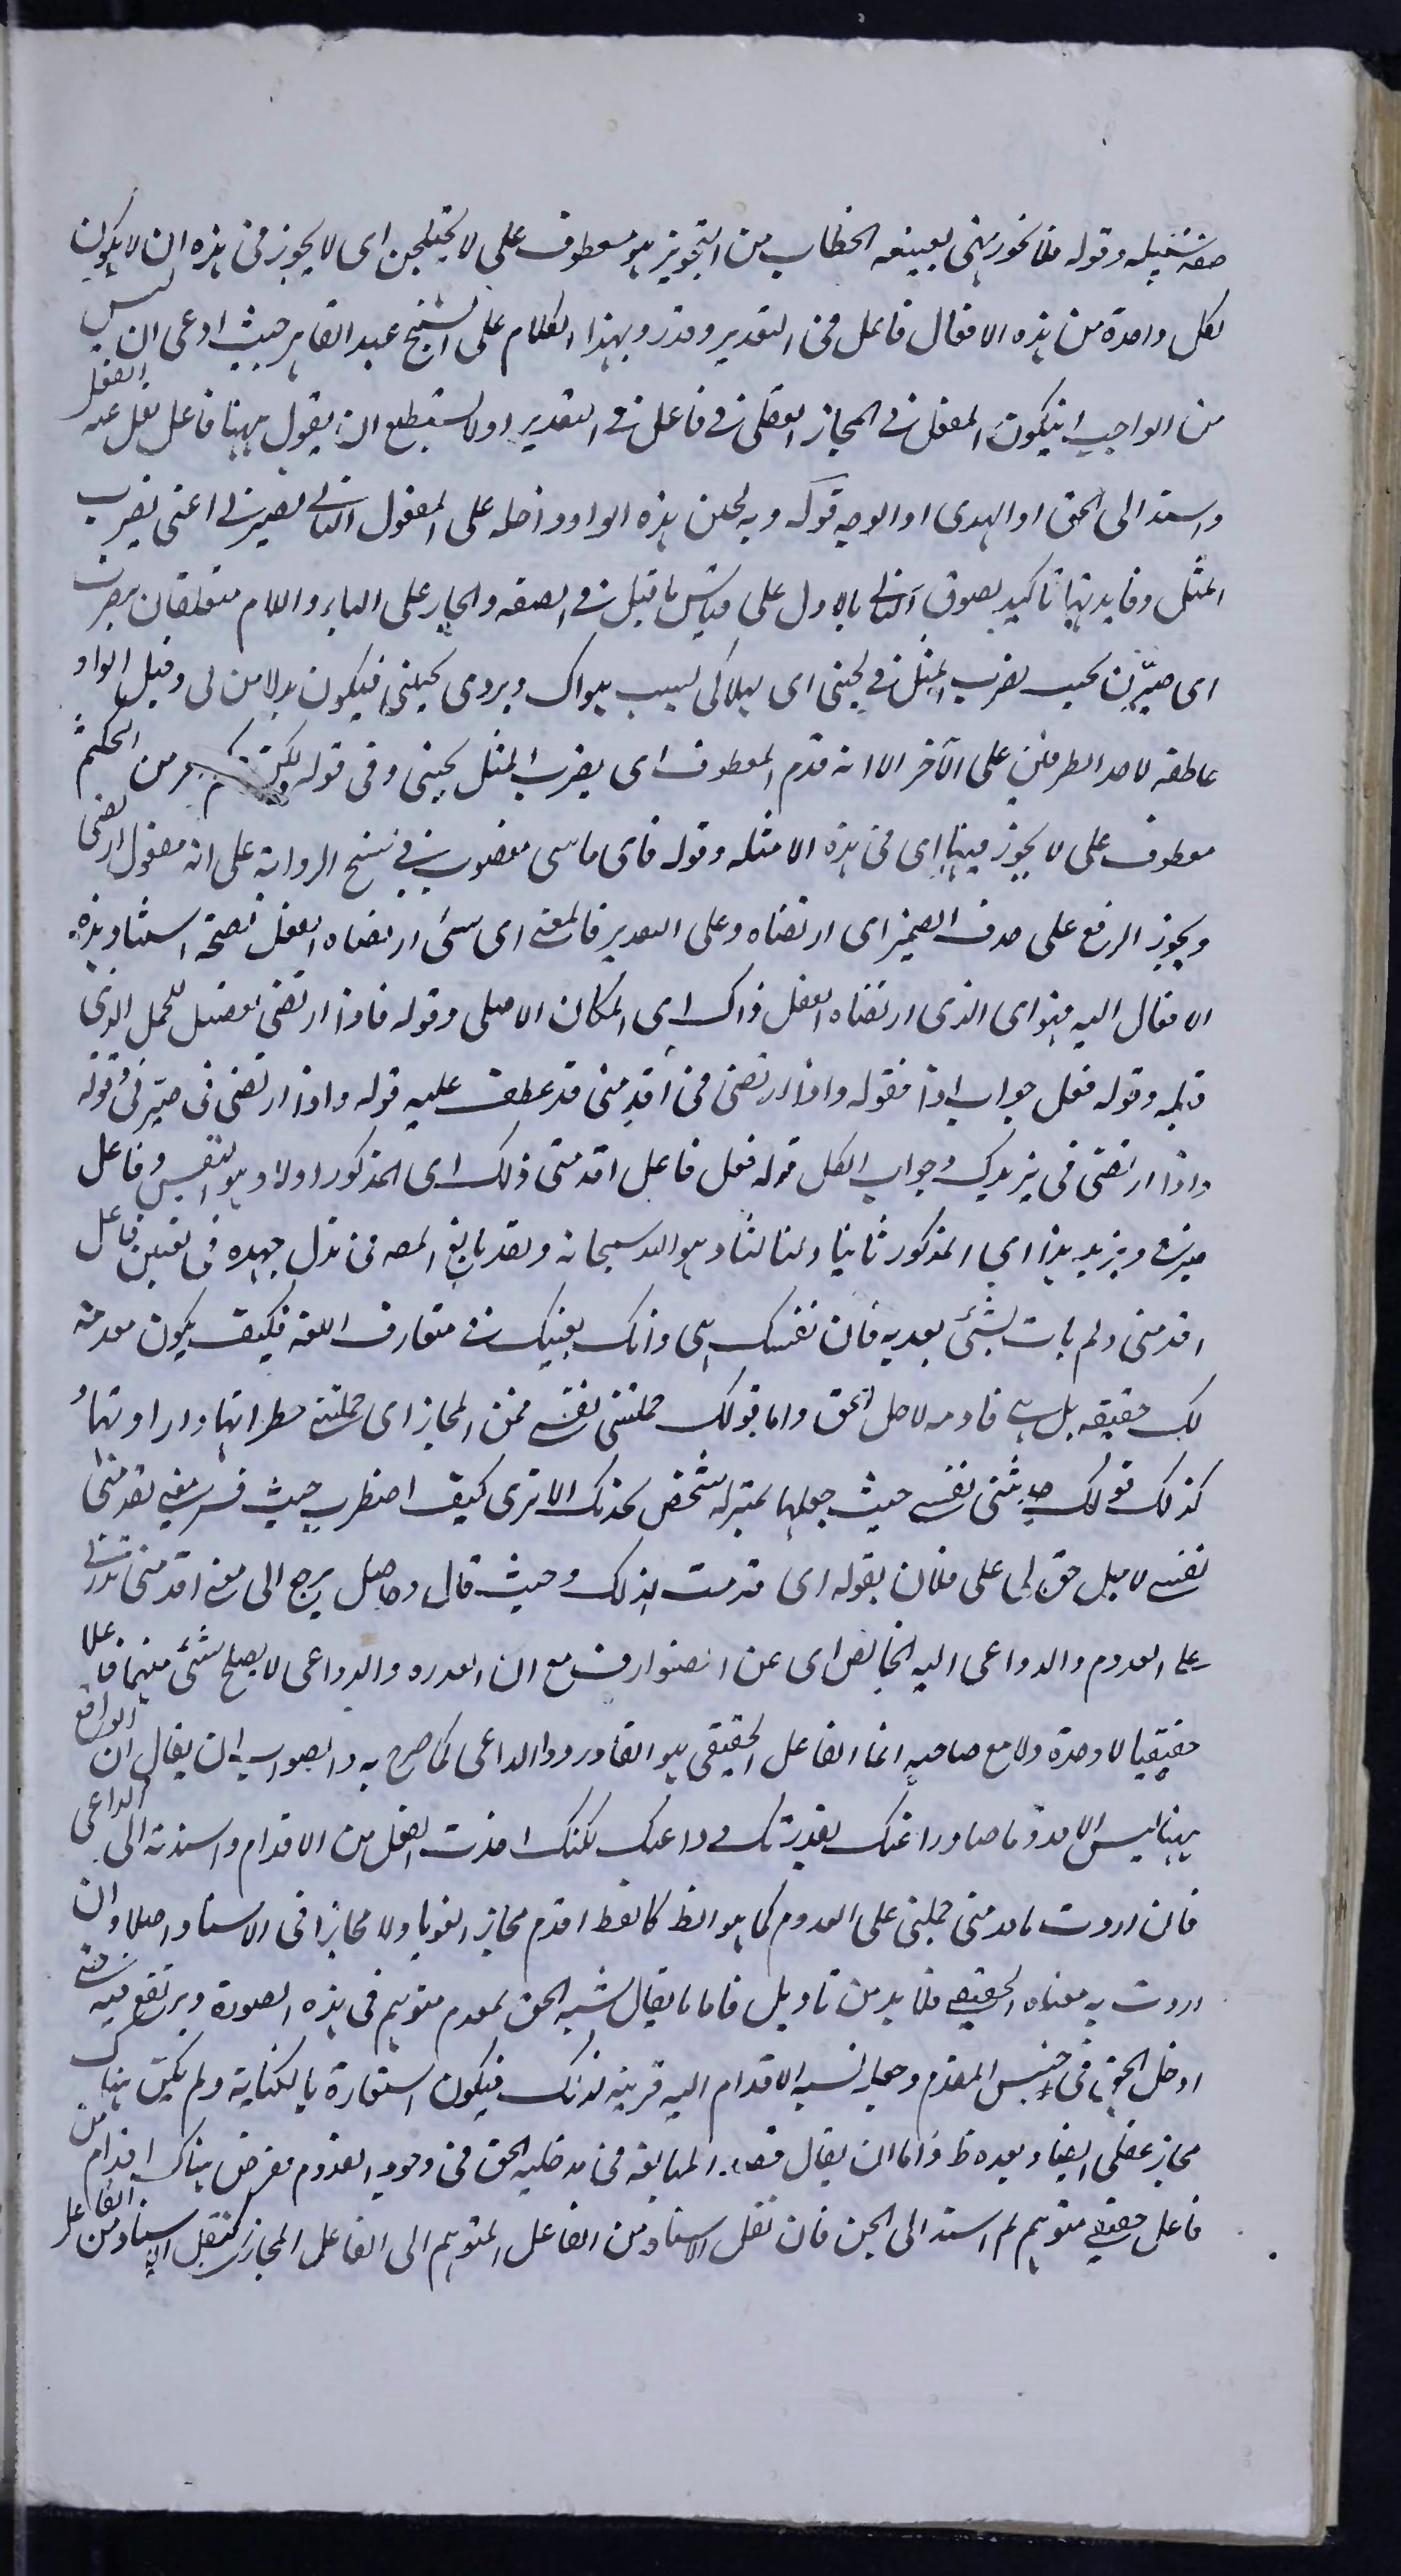 صفة شخيله وقوله فلا تجوزيني بصيغه الخطاب من التجويز هو معطوف على لا يختلجن اى لا يجوز فى هذه ان لا يكون
لكل واحدة من هذه الافعال فاعل فى التقدير وقدرد بهذا الكلام على الشيخ عبد القاهر حيث ادعى ان ليس
من الواجب ان يكون للفعل فى المجاز العقلى فى فاعل فى التقدير اولا يستطيع ان يقول ههنا فاعل نقل عنه الفعل
واسند الى الحق او الهوى او الوجه قوله وبه لحين هذه الواو داخله على المفعول الثانى لصيرنى اعنى يضرب
المثل وفايدتها تاكيد لصوق الثانى بالاول على قياس ما قيل فى الصفه والجار على الباء واللام متعلقان بيضرب
اى صيرنى بحيث يضرب المثل فى لحينى اى لهلاكى بسبب هواك ويروى بحينى فيكون بدلا من لى وقيل الواو
عاطفه لاحد الطرفين على الآخر الا انه قدم المعطوف اى يضرب المثل بحينى وفى قوله من الحكم
معطوف على لا يجوز فيها اى فى هذه الامثله وقوله فاى ما سى منصوب فى نسخ الرواية على انه مفعول ارتضى
ويجوز الرفع على حذف الضمير اى ارتضاه وعلى التقدير فالمعنى اى شئ ارتضاه العقل لصحة استناد هذه
الافعال اليه فهو اى الذى ارتضاه العقل ذاك اى المكان الاصلى وقوله فاذا ارتضى تفصيل للمجمل الذى
قبله وقوله فقل جواب اذا فقوله واذا ارتضى فى اقدمنى قد عطف عليه قوله واذا ارتضى فى صيرنى وقوله
واذا ارتضى فى يزيدك وجواب الكل قوله فقل فاعل اقدمنى ذلك اى المذكور اولا وهو النفس وفاعل
صيرنى ويزيد هذا اى المذكور ثانيا وثالثا وهو الله سبحانه ولقد بالغ المصه فى بذل جهده فى تعيين فاعل
اقدمنى ولم يات بشئ يعد به فان نفسك هى ذاتك بعينك فى متعارف اللغه فكيف يكون مقدمة
لك حقيقه بل هى قادمه لاجل الحق واما قولك حملتنى نفسى فمن المجاز اى حملتنى خطراتها وارادتها
كذلك قولك حدثتنى نفسى حيث جعلها بمنزله شخص يحدثك الا ترى كيف اضطرب حيث فسر معنى تقدمنى
نفسى لاجل حق لى على فلان بقوله اى قدمت لذلك وحيث قال وحاصله يرجع الى معنى اقدمتنى قدرتى
على القدوم والداعى اليه الخالص اى عن الصوارف مع ان القدره والدواعى لا يصلح شئ منهما فاعلا
حقيقيا لا وحده ولا مع صاحبه انما الفاعل الحقيقى هو القادر ذو الداعى كما صرح به والصواب ان يقال ان الواقع
ههنا ليس الا قدوما صادرا عنك بقدرتك وداعيك لكنك اخذت الفعل من الاقدام واسندته الى الداعى
فان اردت باقدمنى حملنى على القدوم كما هو الظ كان لفظ اقدم مجازا لغويا ولا مجاز فى الاسناد اصلا وان
اردت به معناه الحقيقى فلا بد من تاويل فاما ان يقال شبه الحق بمقدم متوهم فى هذه الصورة وبولغ فيه حتى
ادخل الحق فى جنس المقدم وجعل نسبه الاقدام اليه قرينة لذلك فيكون استعارة بالكناية ولم يكن هناك
مجاز عقلى ايضا وبعده ظ واما ان يقال قصد المبالغه فى مدخليه الحق فى وجود القدوم ففرض هناك اقدام من
فاعل حقيقى متوهم ثم اسند الى الحق فان نقل الاسناد من الفاعل المتوهم الى الفاعل المجازى كنقل الاسناد من الفاعل